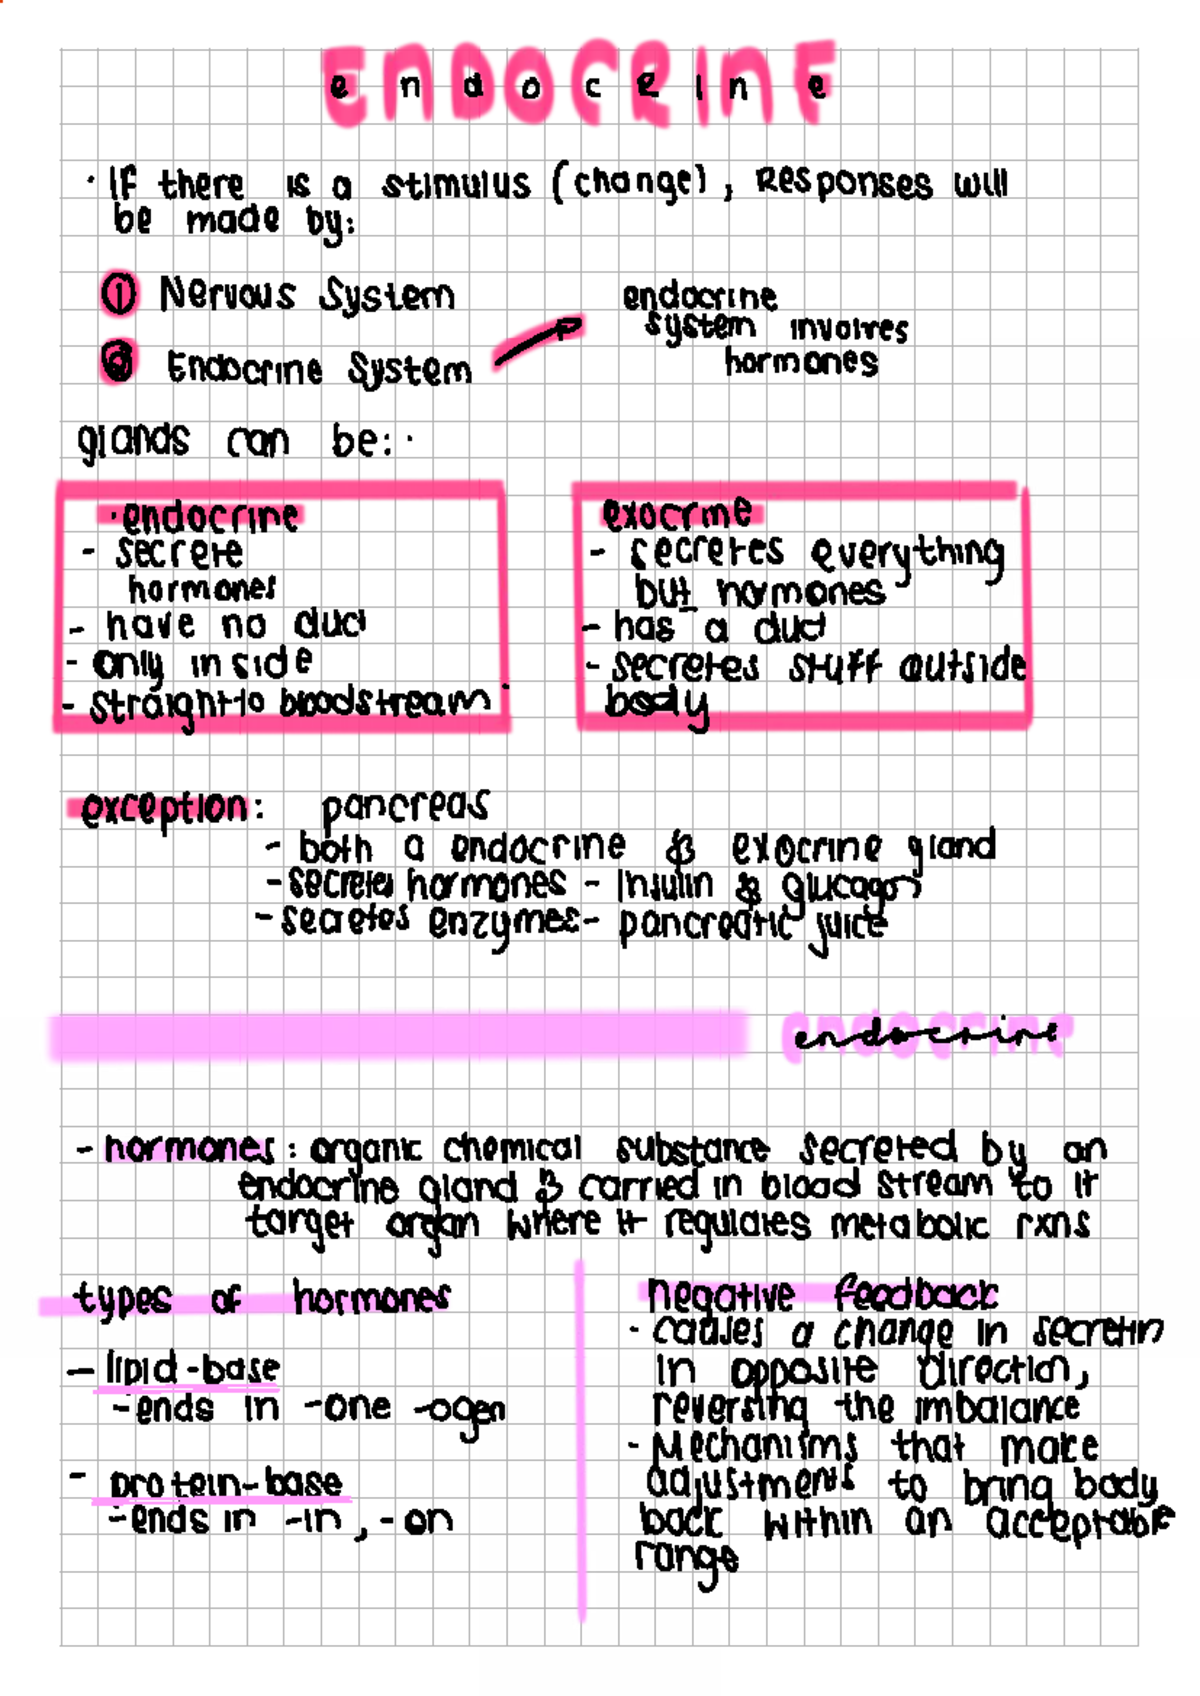 endocrine
· If there is a stimulus (change), Responses will
be made by:
① Nervous System
② Endocrine System
endocrine
system involves
hormones
glands can be:·
·endocrine
- secrete
hormones
- have no duct
- only inside
- straight to bloodstream
exocrine
- secretes everything
but hormones
- has a duct
- secretes stuff outside
body
exception: pancreas
- both a endocrine & exocrine gland
- secretes hormones - Insulin & glucagon
- secretes enzymes - pancreatic juice
endocrine
- hormones: organic chemical substance secreted by an
endocrine gland & carried in blood stream to it
target organ where it regulates metabolic rxns
types of hormones
- lipid-base
- ends in -one -ogen
- protein-base
- ends in -in, -on
negative feedback
· causes a change in secretin
in opposite direction,
reversing the imbalance
- Mechanisms that make
adjustments to bring body
back within an acceptable
range